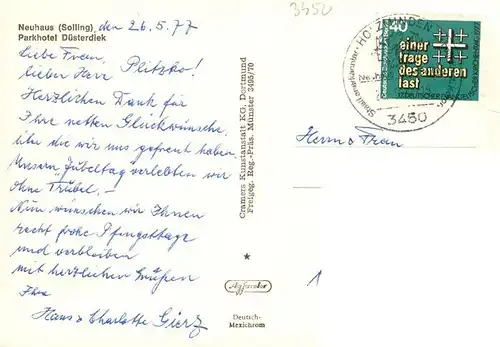 Neuhaus (Solling), den 26.5.77
Parkhotel Düsterdiek
Liebe Frau,
lieber Herr Plitzko!
Herzlichen Dank für
Ihre netten Glückwünsche,
über die wir uns gefreut haben.
Unseren Jubeltag verlebten wir
ohne Trubel. –
Nun wünschen wir Ihnen
recht frohe Pfingsttage
und verbleiben
mit herzlichen Grüßen
Ihre
Hans u. Charlotte Gierz
Cramers Kunstanstalt KG. Dortmund
Freigeg. Reg.-Präs. Münster 3495/70
Deutsch-
Mexichrom
3450
HOLZMINDEN
Staatl. anerkannter
3450
40
einer
trage
des anderen
last
17. DEUTSCHER EVANGELISCHER
Herrn u. Frau
1